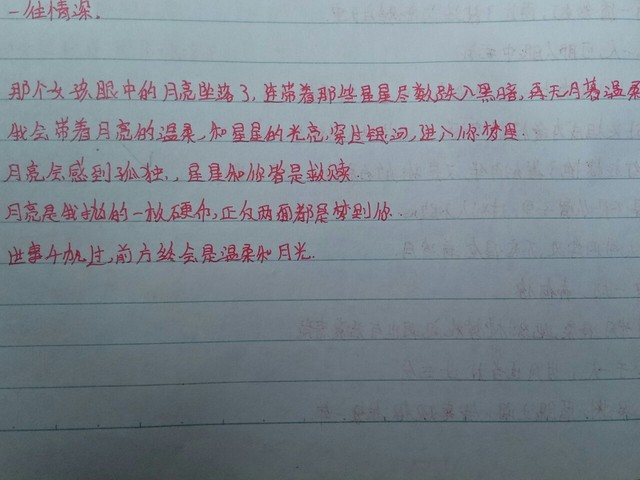 一往情深.
那个女孩眼中的月亮坠落了,连带着那些星星尽数跌入黑暗,再无月暮温柔
我会带着月亮的温柔,和星星的光亮,穿过银河,进入你梦里.
月亮会感到孤独,星星和你皆是救赎.
月亮是我抛的一枚硬币,正反两面都是梦到你.
世事千帆过,前方终会是温柔和月光.